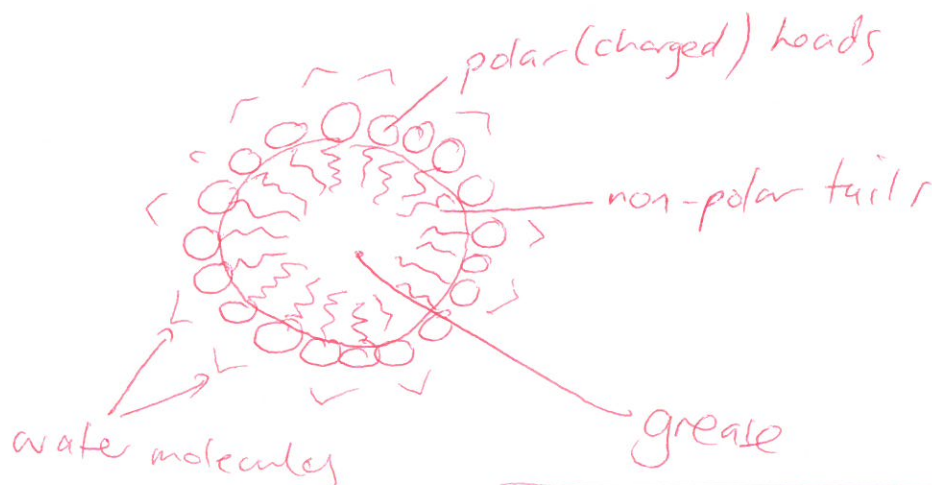 polar (charged) heads
non-polar tails
grease
water molecules